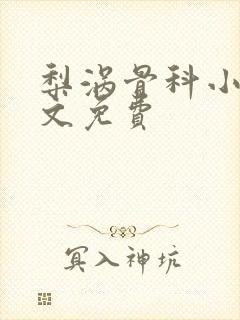 梨涡骨科小
文免費
冥入神坑